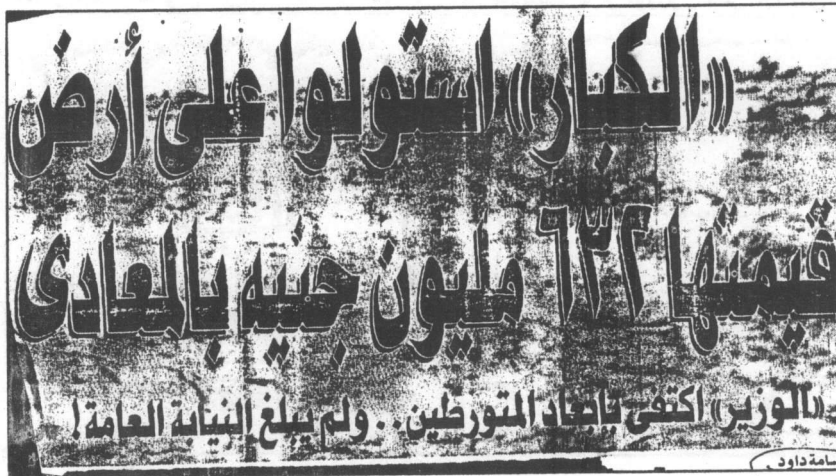 «الكبار» استولوا على أرض
قيمتها ٦٣٢ مليون جنيه بالمعادى
«الوزير» اكتفى بإبعاد المتورطين.. ولم يبلغ النيابة العامة!
داود